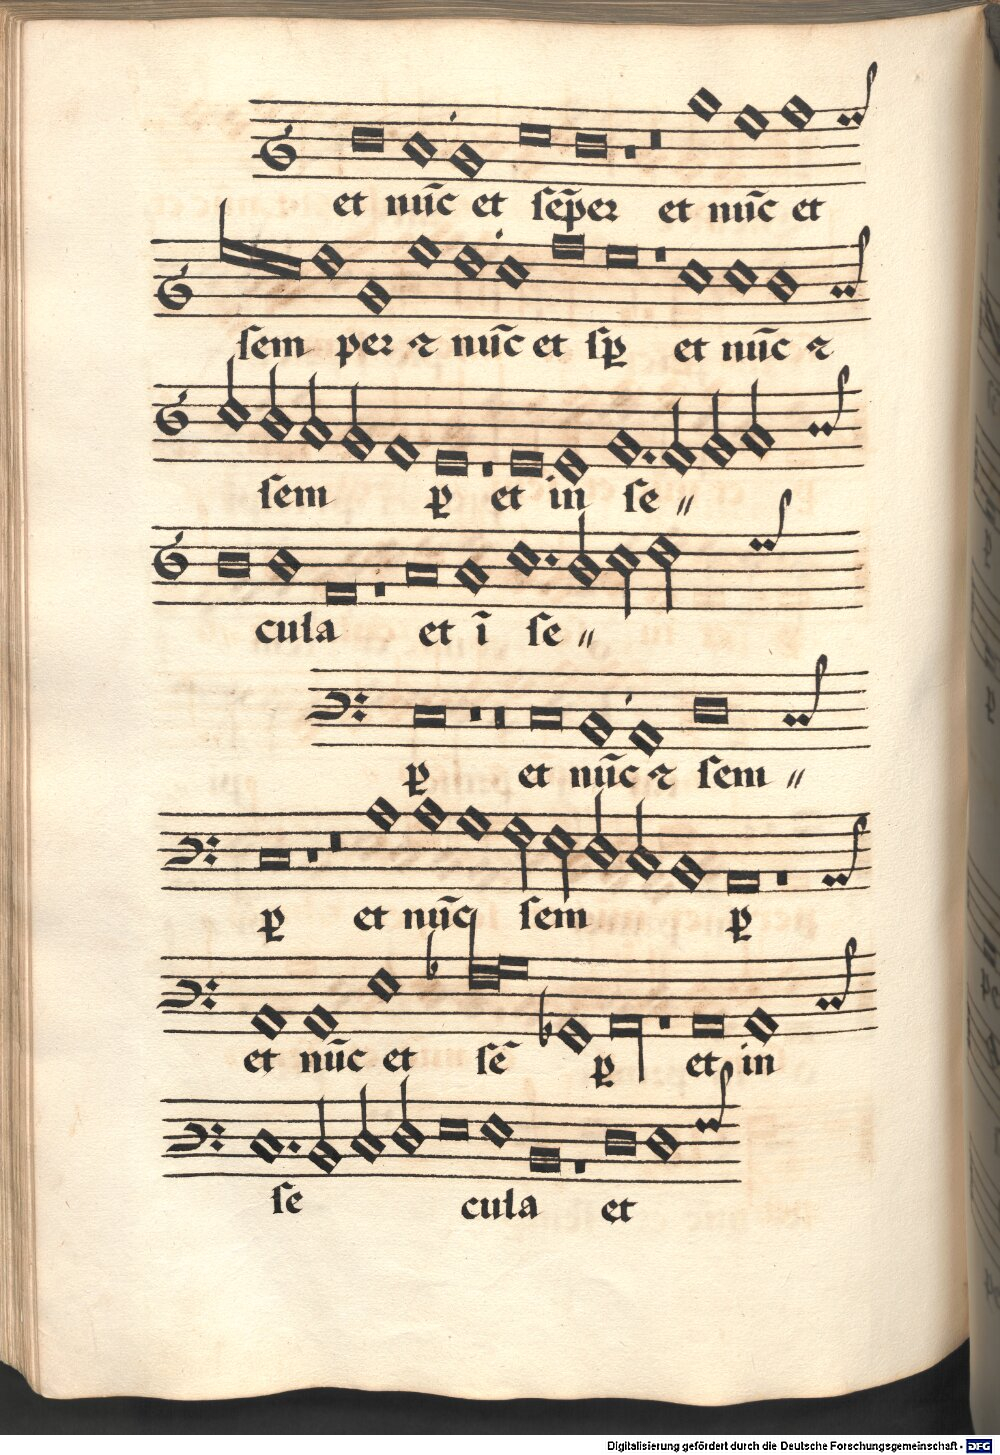 et nūc et ſēp̄er et nūc et
ſem per ꝛ nūc et ſꝑ et nūc ꝛ
ſem ꝑ et in ſe〃
cula et ī ſe〃
ꝑ et nūc ꝛ ſem〃
ꝑ et nūc ſem ꝑ
et nūc et ſē ꝑ et in
ſe cula et
Digitalisierung gefördert durch die Deutsche Forschungsgemeinschaft - DFG